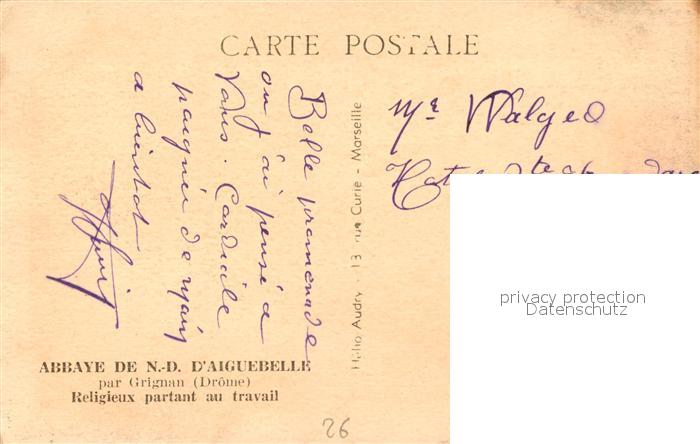 CARTE POSTALE
Belle promenade
ou j'ai pensé a
vous. Cordiale
poignée de main
a bientot
Mr
Hélio Audry - 13 rue Curie - Marseille
ABBAYE DE N.-D. D'AIGUEBELLE
par Grignan (Drôme)
Religieux partant au travail
26
privacy protection
Datenschutz